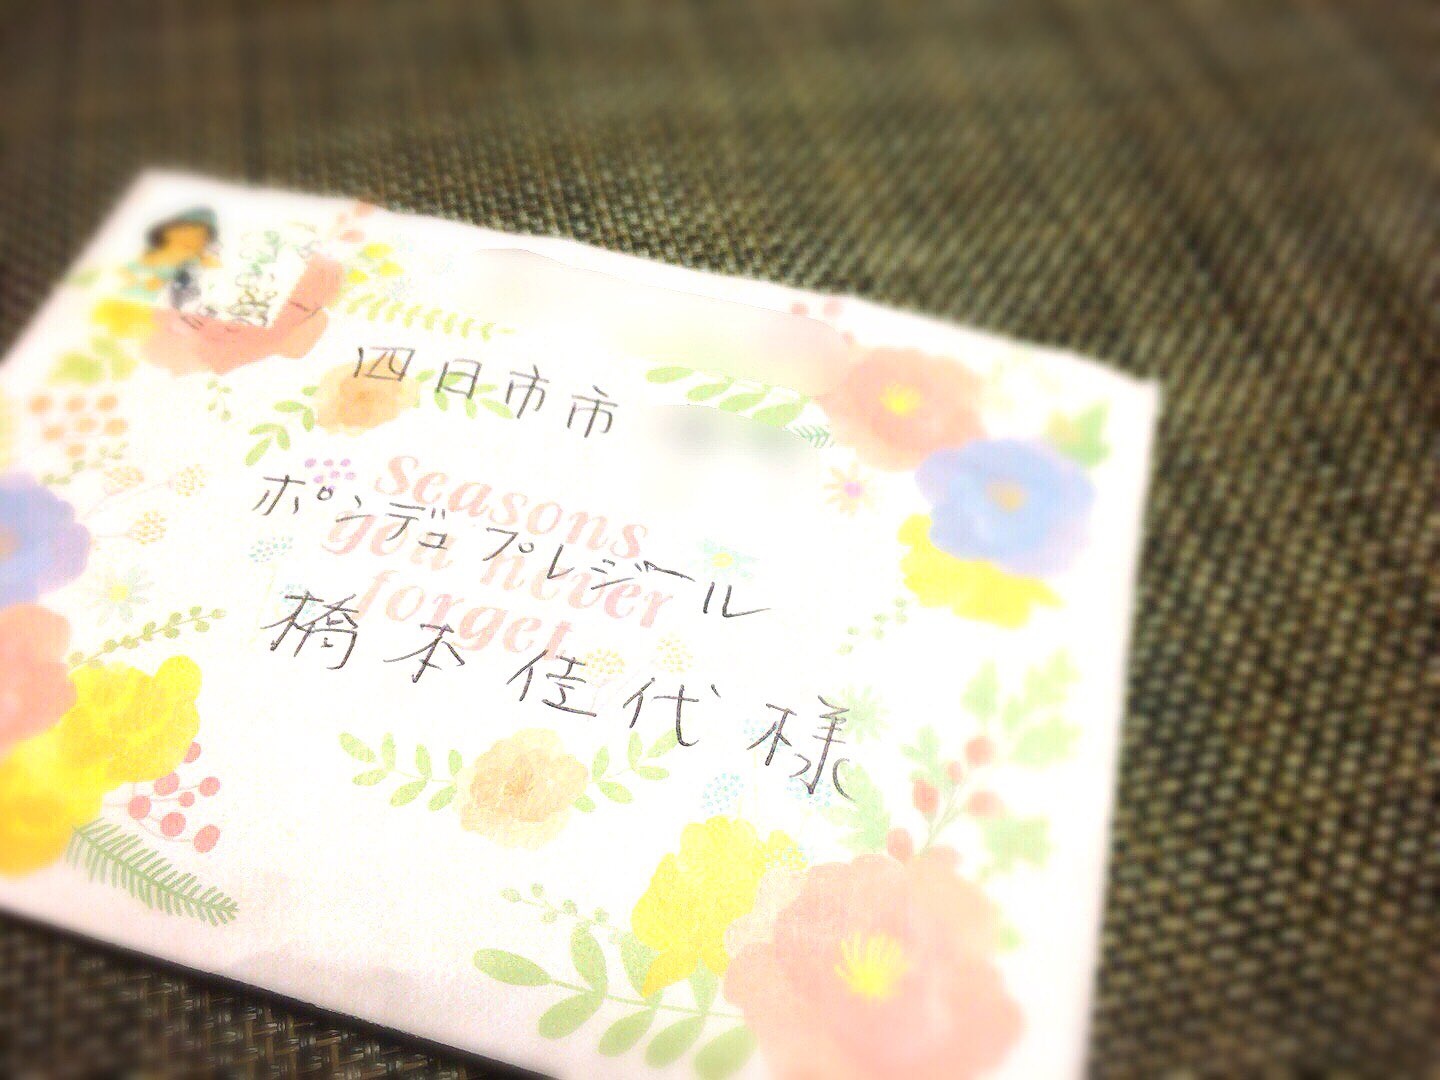 四日市市
ポンデュプレジール
橋本佳代様
seasons
you never
forget